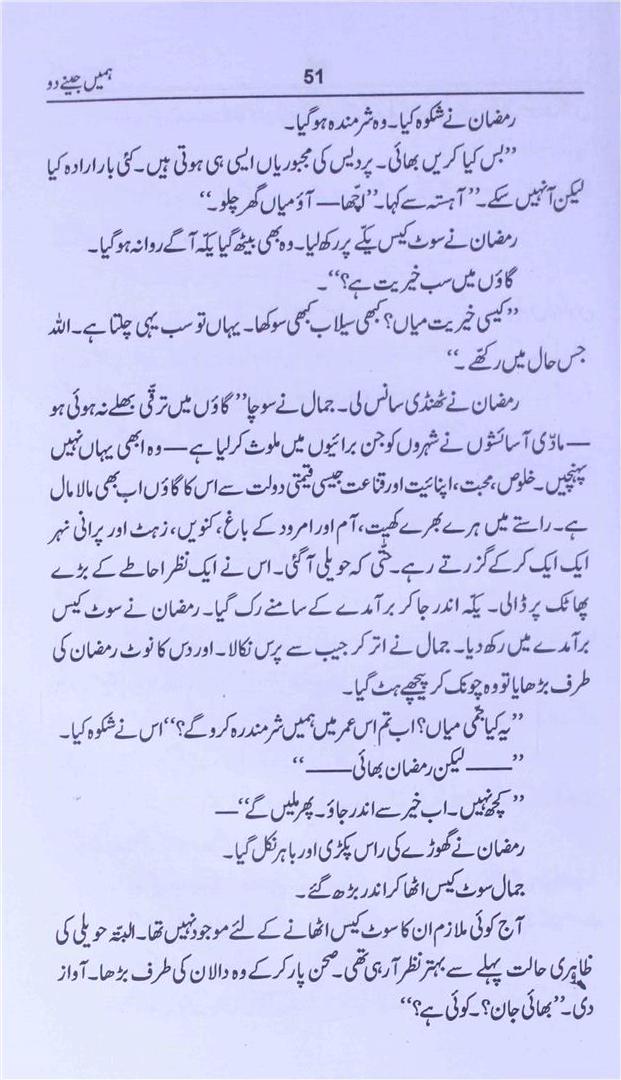 ہمیں جینے دو
51
رمضان نے شکوہ کیا۔ وہ شرمندہ ہوگیا۔
’’بس کیا کریں بھائی۔ پردیس کی مجبوریاں ایسی ہی ہوتی ہیں۔ کئی بار ارادہ کیا
لیکن آ نہیں سکے۔‘‘ آہستہ سے کہا۔ ’’اچّھا — آؤ میاں گھر چلو۔‘‘
رمضان نے سوٹ کیس یکّے پر رکھ لیا۔ وہ بھی بیٹھ گیا یکّہ آگے روانہ ہوگیا۔
گاؤں میں سب خیریت ہے؟‘‘۔
’’کیسی خیریت میاں؟ کبھی سیلاب کبھی سوکھا۔ یہاں تو سب یہی چلتا ہے۔ اللہ
جس حال میں رکھّے۔‘‘
رمضان نے ٹھنڈی سانس لی۔ جمال نے سوچا ’’گاؤں میں ترقّی بھلے نہ ہوئی ہو
— مادّی آسائشوں نے شہروں کو جن برائیوں میں ملوث کرلیا ہے — وہ ابھی یہاں نہیں
پہنچیں۔ خلوص، محبت، اپنائیت اور قناعت جیسی قیمتی دولت سے اس کا گاؤں اب بھی مالا مال
ہے۔ راستے میں ہرے بھرے کھیت، آم اور امرود کے باغ، کنویں، رہٹ اور پرانی نہر
ایک ایک کرکے گزرتے رہے۔ حتّٰی کہ حویلی آگئی۔ اس نے ایک نظر احاطے کے بڑے
پھاٹک پر ڈالی۔ یکّہ اندر جاکر برآمدے کے سامنے رک گیا۔ رمضان نے سوٹ کیس
برآمدے میں رکھ دیا۔ جمال نے اتر کر جیب سے پرس نکالا۔ اور دس کا نوٹ رمضان کی
طرف بڑھایا تو وہ چونک کر پیچھے ہٹ گیا۔
’’یہ کیا جمّی میاں؟ اب تم اس عمر میں ہمیں شرمندرہ کروگے؟‘‘ اس نے شکوہ کیا۔
’’—— لیکن رمضان بھائی ——‘‘
’’کچھ نہیں۔ اب خیر سے اندر جاؤ۔ پھر ملیں گے‘‘—
رمضان نے گھوڑے کی راس پکڑی اور باہر نکل گیا۔
جمال سوٹ کیس اٹھا کر اندر بڑھ گئے۔
آج کوئی ملازم ان کا سوٹ کیس اٹھانے کے لئے موجود نہیں تھا۔ البتّہ حویلی کی
ظاہری حالت پہلے سے بہتر نظر آرہی تھی۔ صحن پار کرکے وہ دالان کی طرف بڑھا۔ آواز
دی۔ ’’بھائی جان؟۔ کوئی ہے؟‘‘